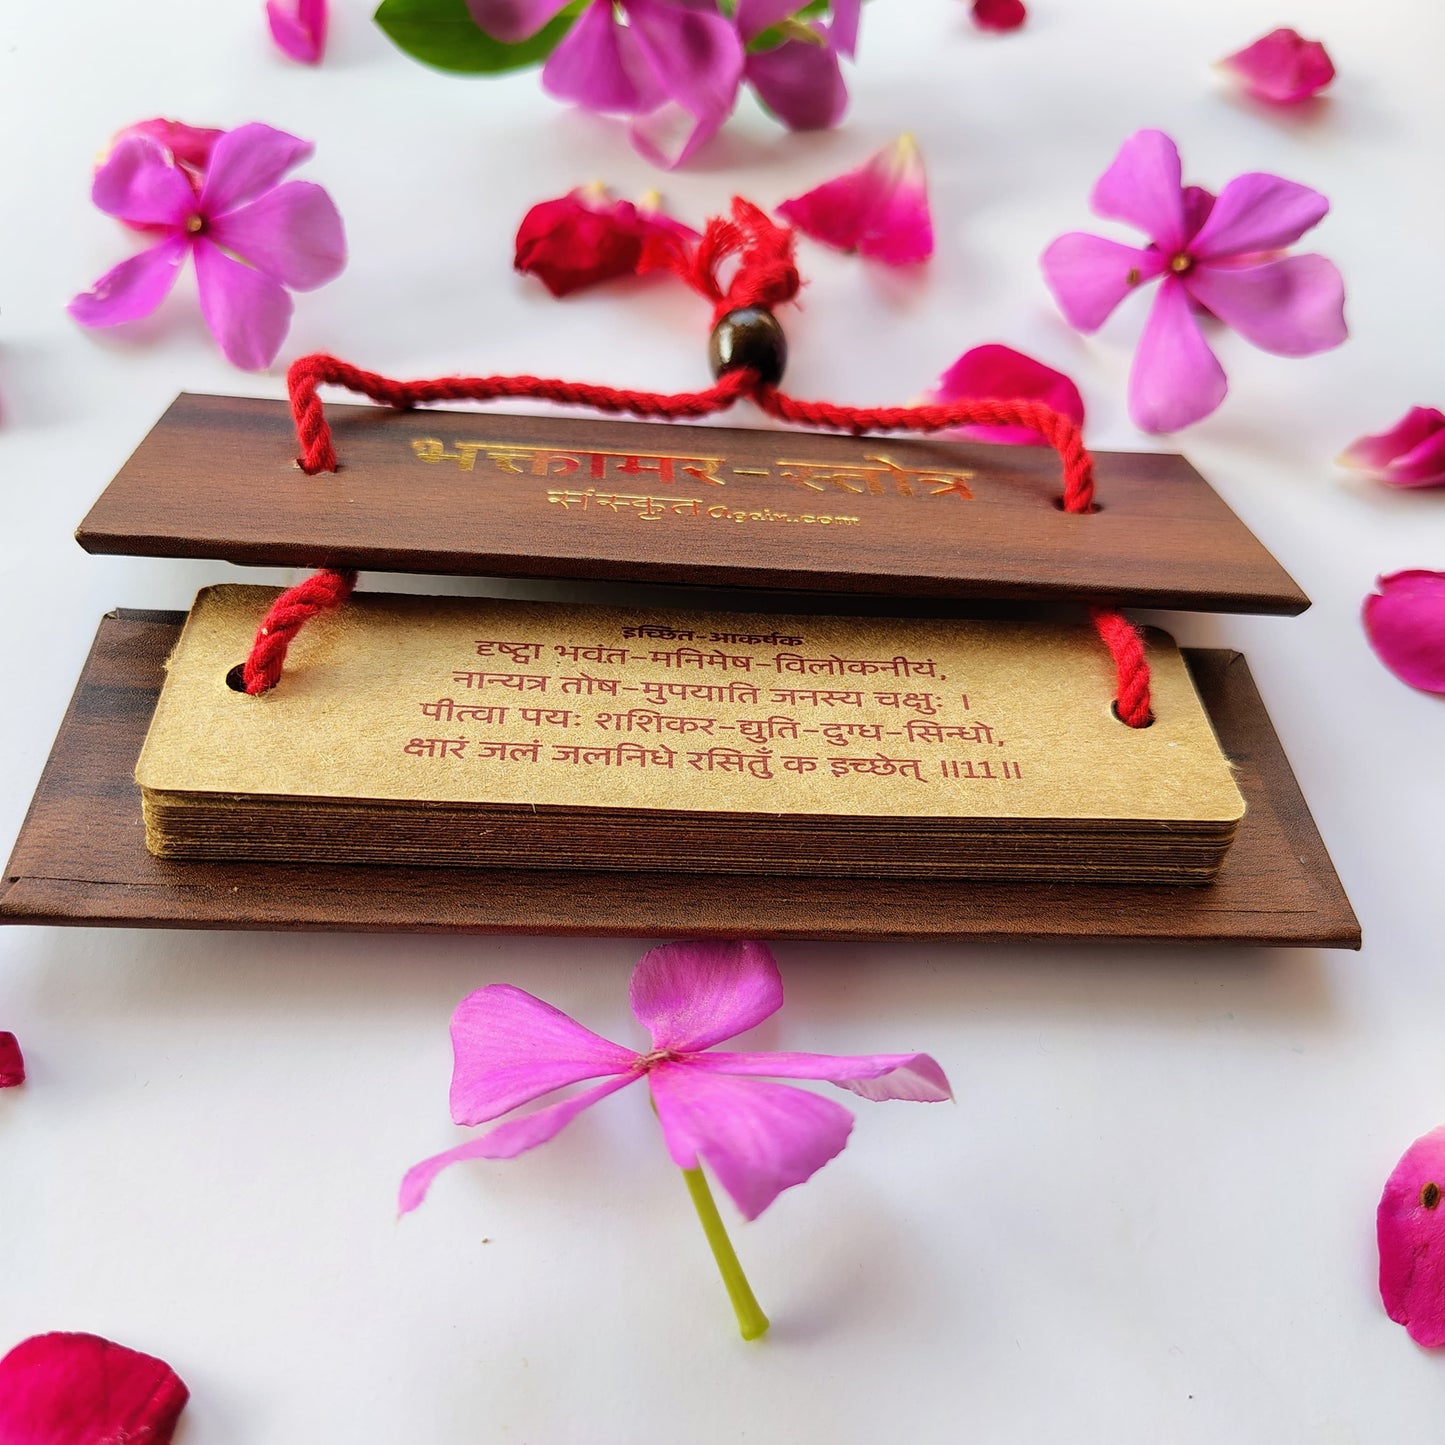 भक्तामर-स्तोत्र
संस्कृत Again..com
इच्छित-आकर्षक
दृष्ट्वा भवंत-मनिमेष-विलोकनीयं,
नान्यत्र तोष-मुपयाति जनस्य चक्षुः ।
पीत्वा पयः शशिकर-द्युति-दुग्ध-सिन्धो,
क्षारं जलं जलनिधे रसितुँ क इच्छेत् ॥11॥